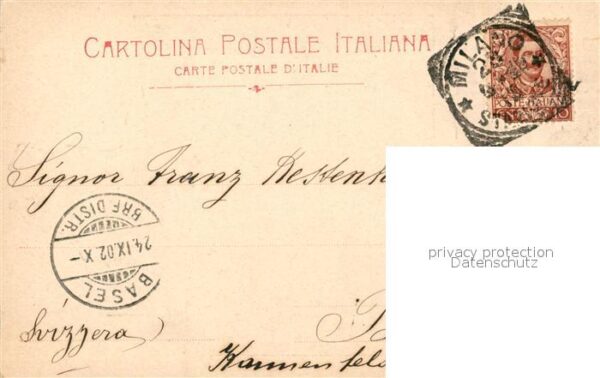 CARTOLINA POSTALE ITALIANA
CARTE POSTALE D'ITALIE
MILANO
POSTE ITALIANE
Signor Franz
privacy protection
Datenschutz
BRF. DISTR.
24.IX.02.X-
BASEL
Svizzera
Kannenfeld